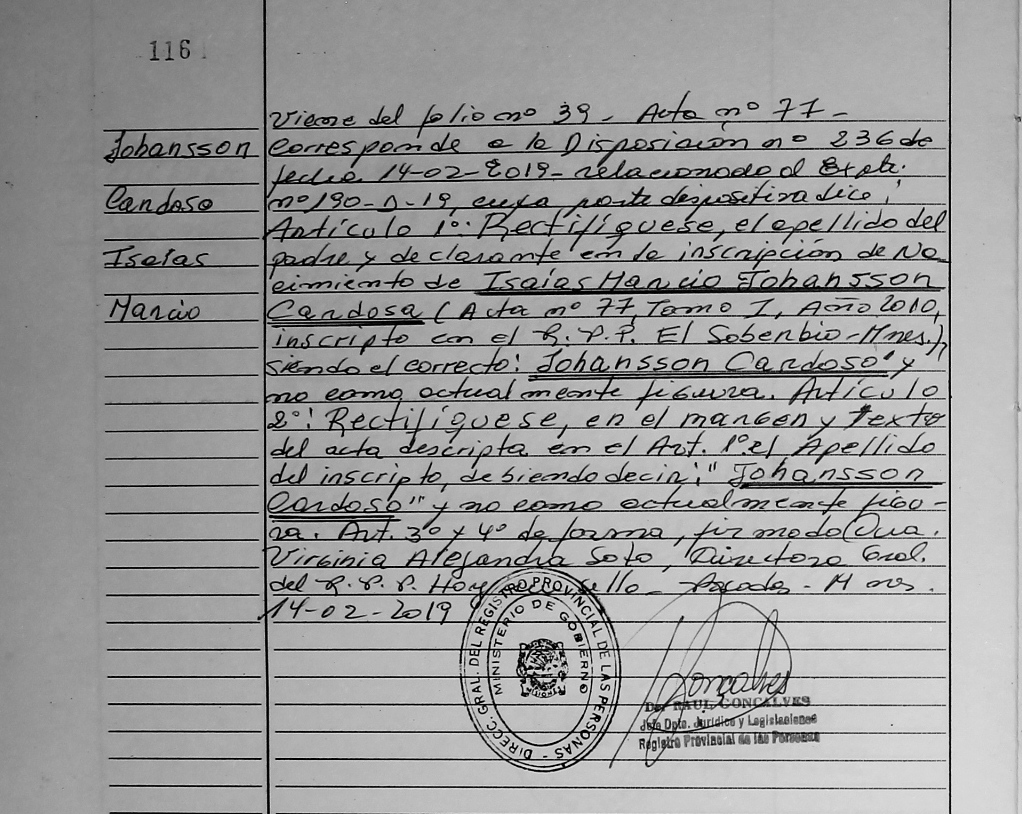 116
Johansson
Cardoso
Isaías
Marcio
Viene del folio nº 39 - Acta nº 77 -
Corresponde a la Disposición nº 236 de
fecha 14-02-2019 - relacionado al Expte.
nº 190-D-19, cuya parte dispositiva dice:
Artículo 1º: Rectifíquese, el apellido del
padre y declarante en la inscripción de Na
cimiento de Isaías Marcio Johansson
Cardosa (Acta nº 77, Tomo I, Año 2010,
inscripto en el R.P.P. El Soberbio-Mnes.),
siendo el correcto: Johansson Cardoso" y
no como actualmente figura. Artículo
2º: Rectifíquese, en el margen y texto
del acta descripta en el Art. 1º el Apellido
del inscripto, debiendo decir: "Johansson
Cardoso" y no como actualmente figu-
ra. Art. 3º y 4º de forma, firmado Dra.
Virginia Alejandra Soto, Directora Gral.
del R.P.P. Hay sello - Posadas - Mnes.
14-02-2019
DIRECC. GRAL. DEL REGISTRO PROVINCIAL DE LAS PERSONAS -
MINISTERIO DE GOBIERNO
MISIONES
Gonçalves
Dr. RAUL GONCALVES
Jefe Dpto. Jurídico y Legislaciones
Registro Provincial de las Personas